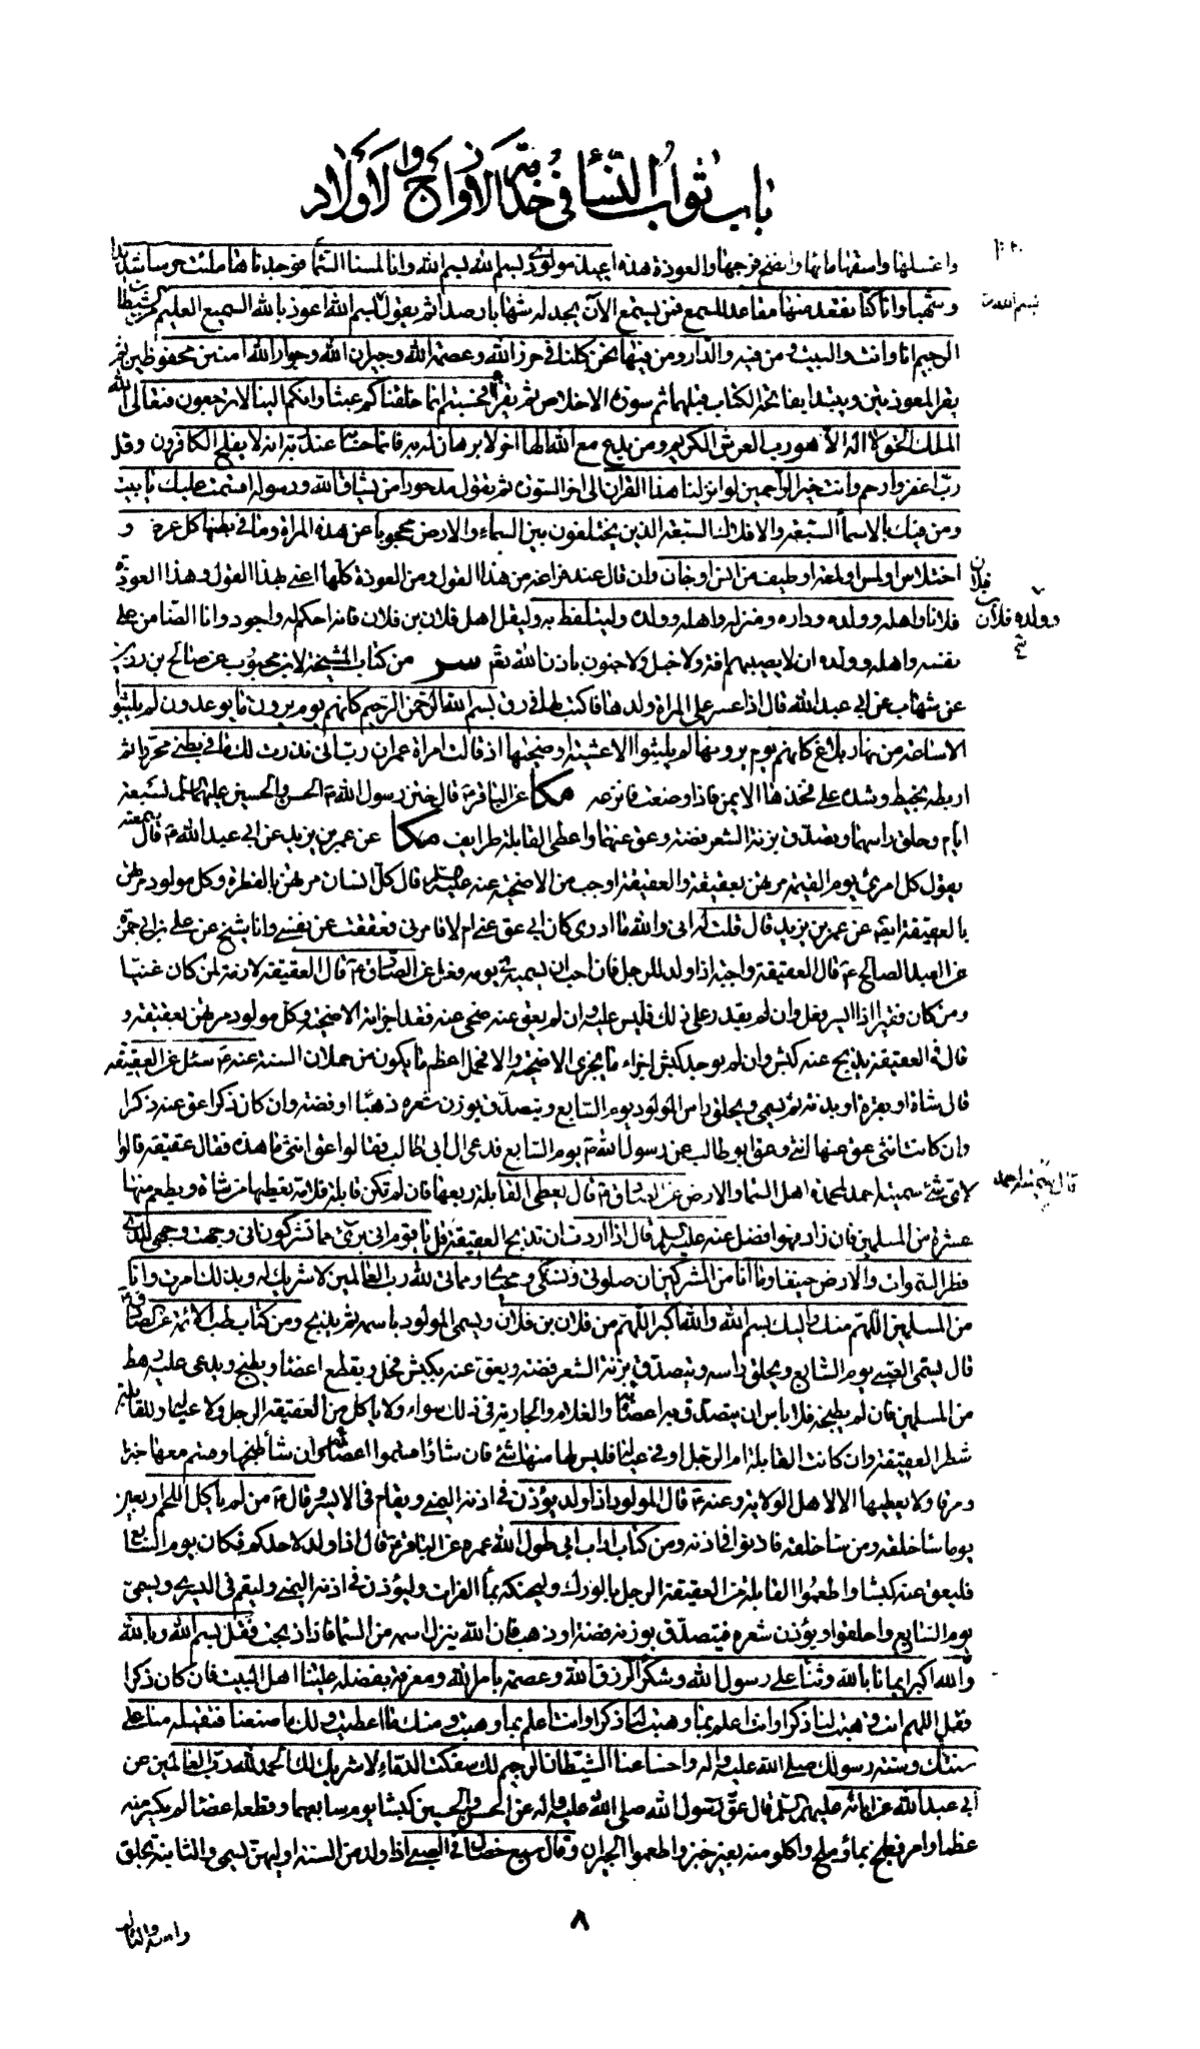 باب ثواب النساء في خدمة الازواج والاولاد
واغسلها واسقها مائها وانضح فرجها والعوذة هذه اعيذ مولودي بسم الله بسم الله وانا لمسنا السماء فوجدناها ملئت حرسا شديدا
بسم الله
وشهبا وانا كنا نقعد منها مقاعد للسمع فمن يستمع الآن يجد له شهابا رصدا ثم يقول بسم الله اعوذ بالله السميع العليم من الشيطان
الرجيم انا وانت والبيت ومن فيه والدار ومن فيها نحن كلنا في حرز الله وعصمة الله وجيران الله وجوار الله امنين محفوظين ثم
يقرأ المعوذتين ويبتدا بفاتحة الكتاب قبلهما ثم سورة الاخلاص ثم يقرأ افحسبتم انما خلقناكم عبثا وانكم الينا لا ترجعون فتعالى الله
الملك الحق لا اله الا هو رب العرش الكريم ومن يدع مع الله الها اخر لا برهان له به فانما حسابه عند ربه انه لا يفلح الكافرون وقل
رب اغفر وارحم وانت خير الراحمين لو انزلنا هذا القرآن الى اخر السورة ثم يقول مدحورا من يشاق الله ورسوله اقسمت عليك يا بيت
ومن فيك بالاسماء السبعة والاملاك السبعة الذين يختلفون بين السماء والارض محجوبا عن هذه المرأة وما في بطنها كل عرض و
اختلاس او لمس او لمعة او طيف من انس او جان وان قال عند فراغه من هذا القول ومن العوذة كلها اعني بهذا القول وهذا العوذة
فلان
فلانا واهله وولده وداره ومنزله واهله وولده وليتلفظ به وليقل اهل فلان بن فلان فانه احكم له واجود وانا الضامن على
وولده فلان
نفسه واهله وولده ان لا يصيبهم افة ولا خبل ولا جنون باذن الله تعالى سر من كتاب المشيخة لابن محبوب عن صالح بن رزين
عن شهاب عن ابي عبد الله قال اذا عسر على المرأة ولدها فاكتب لها في رق بسم الله الرحمن الرحيم كانهم يوم يرون ما يوعدون لم يلبثوا
الا ساعة من نهار بلاغ كانهم يوم يرونها لم يلبثوا الا عشية او ضحيها اذ قالت امرأة عمران رب اني نذرت لك ما في بطني محررا ثم
اربطه بخيط وشده على فخذها الايمن فاذا وضعت فانزعه مكا عن الباقر قال ختن رسول الله الحسن والحسين عليهما السلم لسبعة
ايام وحلق راسهما وتصدق بزنة الشعر فضة وعق عنهما واعطى القابلة طرايف مكا عن عمر بن يزيد عن ابي عبد الله قال سمعته
يقول كل امرئ يوم القيمة مرتهن بعقيقته والعقيقة اوجب من الاضحية عنه عليه السلم قال كل انسان مرتهن بالفطرة وكل مولود مرتهن
بالعقيقة ايضا عن عمر بن يزيد قال قلت له اني والله ما ادري كان ابي عق عني ام لا فامرني فعققت عن نفسي وانا شيخ عن علي بن ابي حمزة
عن العبد الصالح قال العقيقة واجبة اذا ولد للرجل فان احب ان يسميه في يومه فعل عن الصادق قال العقيقة لازمة لمن كان غنيا
ومن كان فقيرا اذا ايسر فعل وان لم يقدر على ذلك فليس عليه وان لم يعق عنه ضحى عنه فقد اجزاته الاضحية وكل مولود مرتهن بعقيقته و
قال في العقيقة يذبح عنه كبش وان لم يوجد كبش اجزاء ما يجزي الاضحية والا فحمل اعظم ما يكون من حملان السنة عنه سئل عن العقيقة
قال شاة او بقرة او بدنة ثم يسمى ويحلق راس المولود يوم السابع ويتصدق بوزن شعره ذهبا او فضة وان كان ذكرا عق عنه ذكرا
وان كانت انثى عق عنها انثى وعق ابو طالب عن رسول الله يوم السابع فدعى ال ابي طالب فقالوا ما هذه فقال عقيقة قالوا
لاي شيء سميته احمد لمحمدة اهل السماء والارض عن الصادق قال يعطى القابلة ربعها فان لم تكن قابلة فلامه تعطيها من شاءت ويطعم منها
عشرة من المسلمين فان زاد فهو افضل عنه عليه السلم قال اذا اردت ان تذبح العقيقة قل يا قوم اني بريء مما تشركون اني وجهت وجهي للذي
فطر السموات والارض حنيفا وما انا من المشركين ان صلوتي ونسكي ومحياي ومماتي لله رب العالمين لا شريك له وبذلك امرت وانا
من المسلمين اللهم منك واليك بسم الله والله اكبر اللهم من فلان بن فلان ويسمى المولود باسمه ثم يذبح ومن كتاب طب الائمة عن الصادق
قال يسمى الصبي يوم السابع ويحلق راسه ويتصدق بزنة الشعر فضة ويعق عنه بكبش فحل ويقطع اعضاء ويطبخ ويدعى عليه رهط
من المسلمين فان لم يطبخه فلا باس ان يتصدق به اعضاء والغلام والجارية في ذلك سواء ولا ياكل من العقيقة الرجل ولا عياله وللقابلة
شطر العقيقة وان كانت القابلة ام الرجل او في عياله فليس لها منها شيء فان شاء قسمها اعضاء وان شاء طبخها وقسم معها خبزا
ومرقا ولا يعطيها الا لاهل الولاية وعنه قال المولود اذا ولد يؤذن في اذنه اليمنى ويقام في الايسر وقال من لم ياكل اللحم اربعين
يوما ساء خلقه ومن ساء خلقه فاذنوا في اذنه ومن كتاب اداب ابي طول الله عمره عن الباقر قال اذا ولد لاحدكم فكان يوم السابع
فليعق عنه كبشا واطعموا القابلة من العقيقة الرجل بالورك وليحنكه بماء الفرات وليؤذن في اذنه اليمنى وليقم في اليسرى ويسمى
يوم السابع واحلقوا ويوزن شعره فيتصدق بوزنه فضة او ذهب فان الله ينزل اسمه من السماء فاذا ذبحت فقل بسم الله وبالله
والله اكبر ايمانا بالله وثناء على رسول الله وشكرا لرزق الله وعصمة بامر الله ومعرفة بفضله علينا اهل البيت فان كان ذكرا
فقل اللهم انت وهبت لنا ذكرا وانت اعلم بما وهبت لنا ذكرا وانت اعلم بما وهبت ومنك ما اعطيت ولك ما صنعنا فتقبله منا على
سنتك وسنة رسولك صلى الله عليه واله واخسأ عنا الشيطان الرجيم لك سفكت الدماء لا شريك لك الحمد لله رب العالمين عن
ابي عبد الله عن ابائه عليهم السلم قال عق رسول الله صلى الله عليه واله عن الحسن والحسين كبشا يوم سابعهما وقطعه اعضاء لم يكسر منه
عظما وامر فطبخ بماء وملح واكلوا منه بغير خبز واطعموا الجيران وقال سبع خصال في الصبي اذا ولد من السنة اوليهن يسمى والثانية يحلق
٨